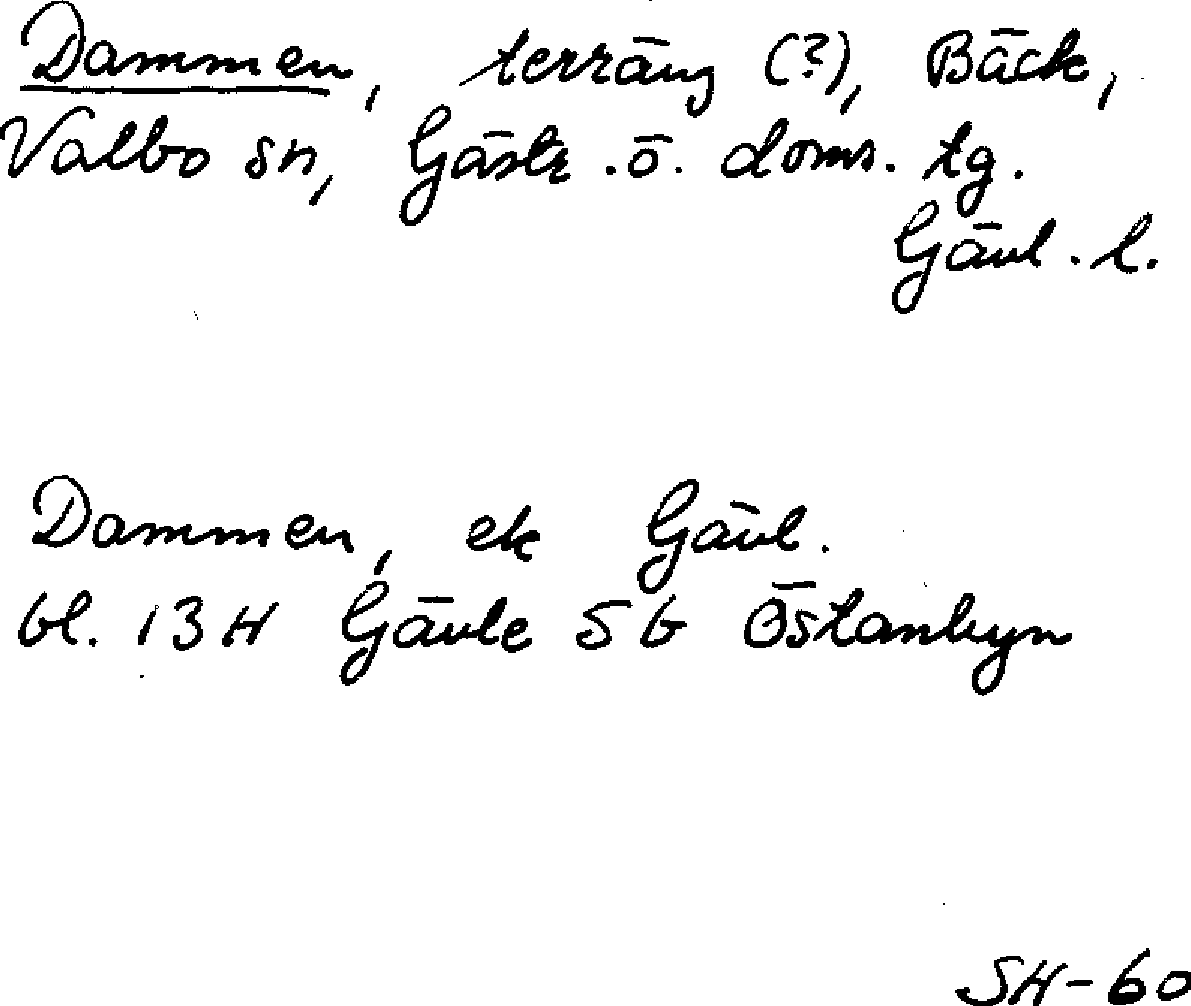 Dammen, terräng (?), Bäck,
Valbo sn, Gästr. ö. doms. tg.
Gävl. l.
Dammen, ek Gävl.
bl. 13H Gävle 5b Östanbyn
SH-60